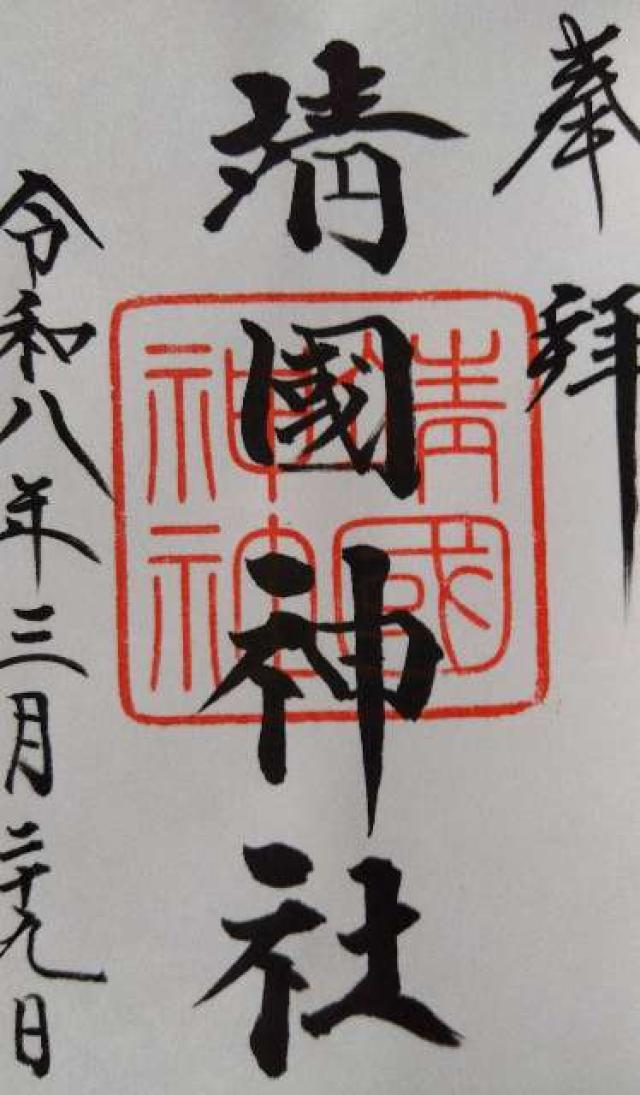 奉拜
靖國神社
令和八年三月二十九日
靖國
神社